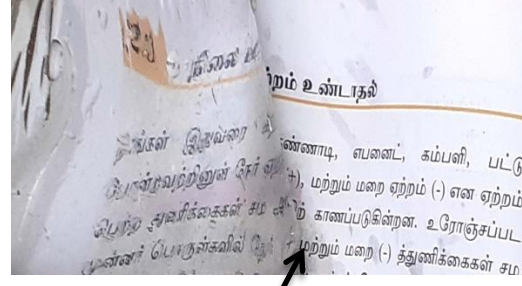 நிலை
ற்றம் உண்டாதல்
நீங்கள் இதுவரை கண்ணாடி, எபனைட், கம்பளி, பட்டு
போன்றவற்றினுள் நேர் (+), மற்றும் மறை ஏற்றம் (-) என ஏற்றம்
பெற்ற துணிக்கைகள் சம காணப்படுகின்றன. உரோஞ்சப்பட
முன்னர் பொருள்களில் நேர் + மற்றும் மறை (-) த்துணிக்கைகள் சம